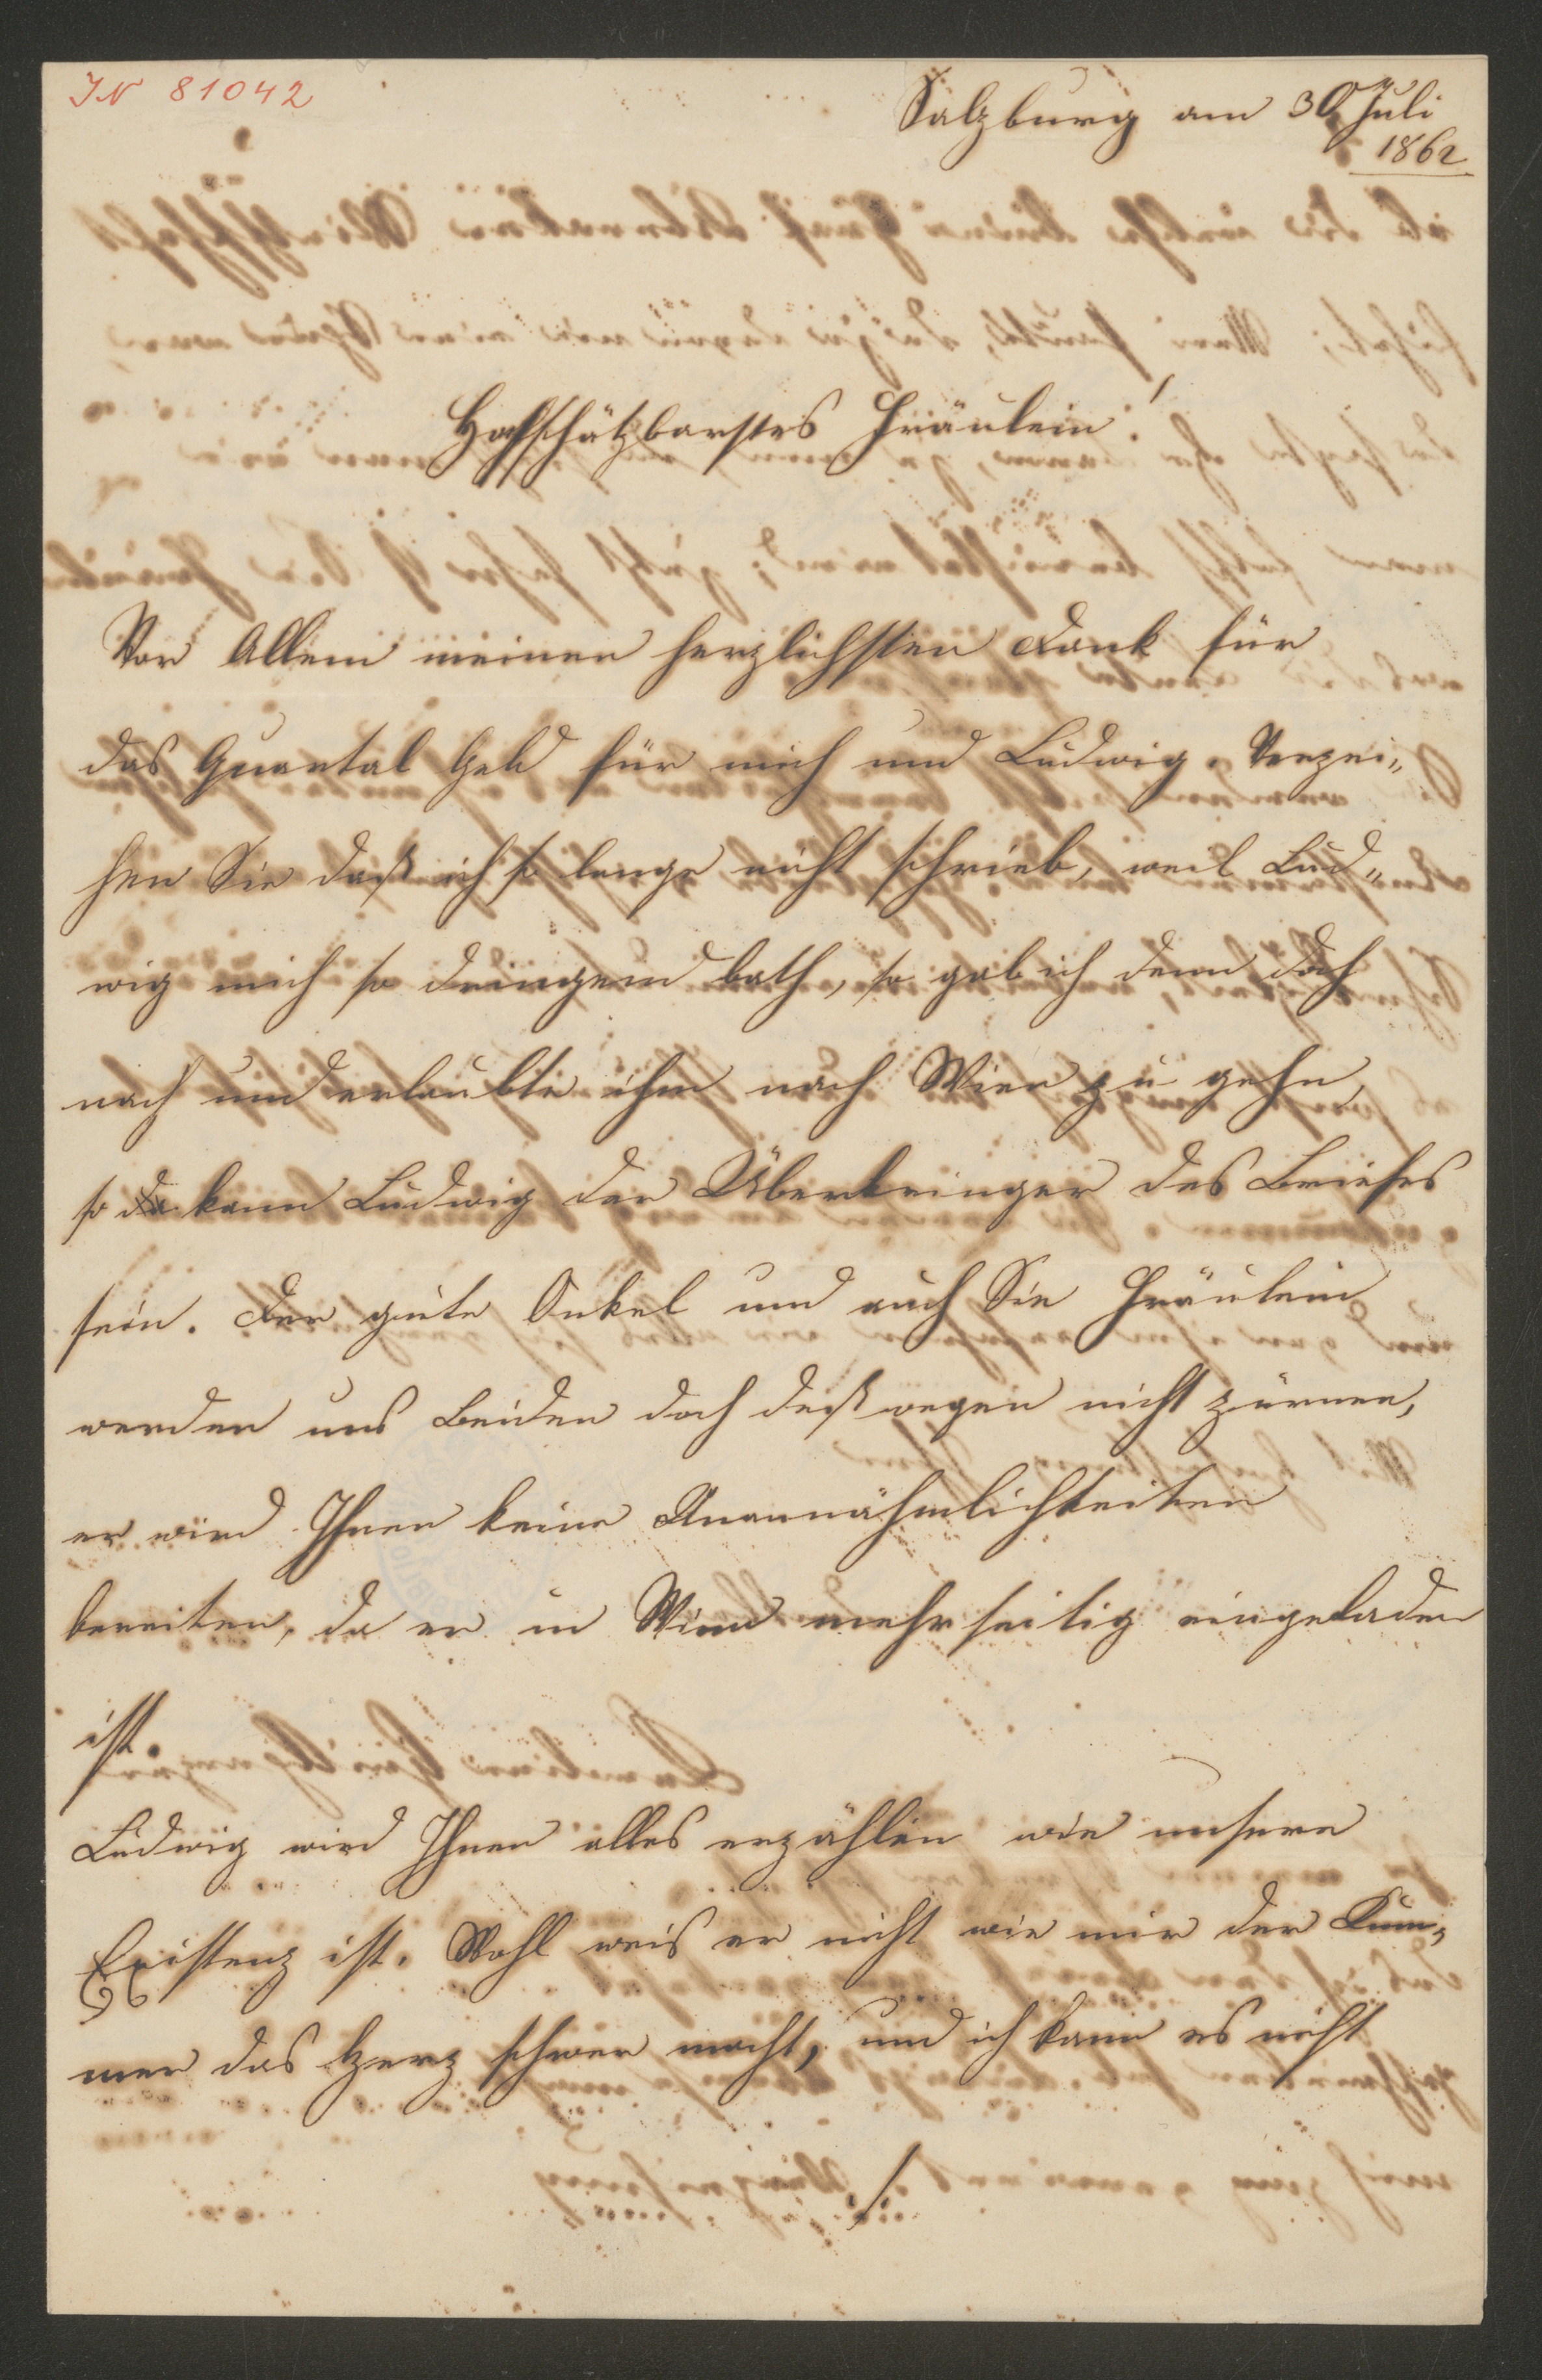 IN 81042
Salzburg am 30 Juli
1862
Hochschätzbarstes Fräulein!
Vor Allem meinen herzlichsten Dank für
das Quartal Geld für mich und Ludwig. Verzei„
hen Sie daß ich so lange nicht schrieb, weil Lud„
wig mich so dringend bath, so gab ich denn doch
nach und erlaubte ihm nach Wien zu gehn,
so kann Ludwig der Überbringer des Briefes
sein. Der gute Onkel und auch Sie Fräulein
werden uns Beiden doch deßwegen nicht zürnen,
er wird Ihnen keine Unannähmlichkeiten
bereiten, da er in Wien mehrseitig eingeladen
ist.
Ludwig wird Ihnen alles erzählen wie unsere
Existenz ist. Wohl weis er nicht wie mir der Kum„
mer das Herz schwer macht, und ich kann es nicht